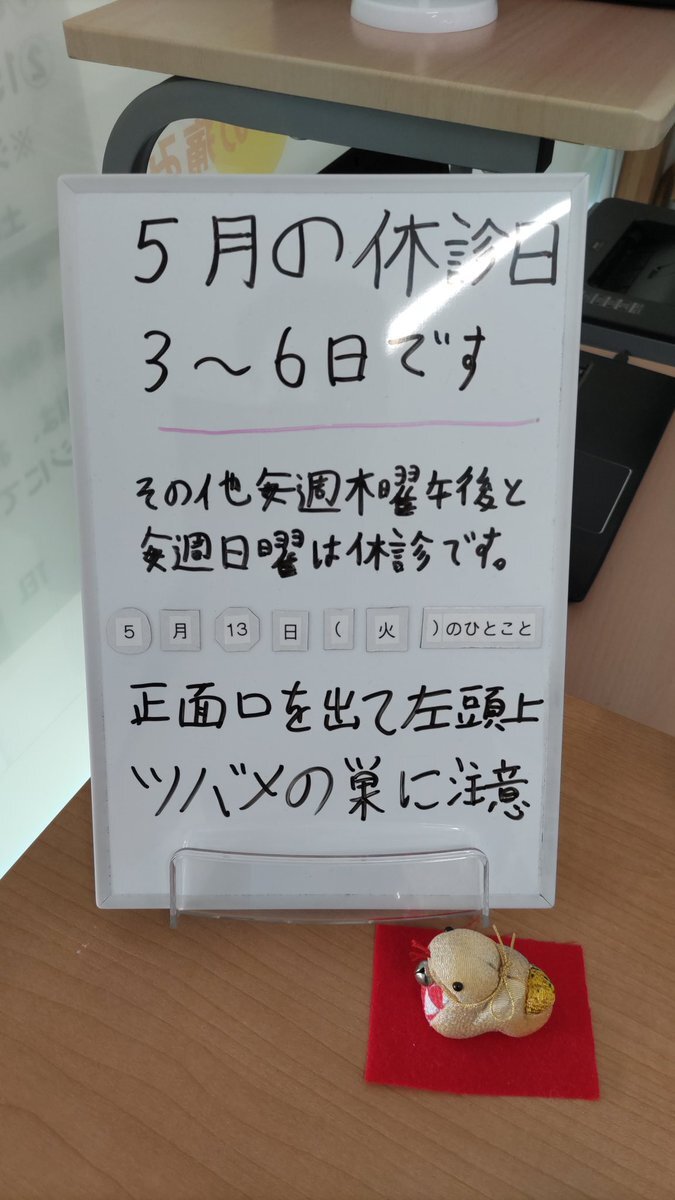 5月の休診日
3～6日です
その他毎週木曜午後と
毎週日曜は休診です。
5月13日(火)のひとこと
正面口を出て左頭上
ツバメの巣に注意
の痛み